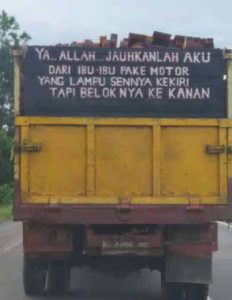 YA.. ALLAH... JAUHKANLAH AKU
DARI IBU-IBU PAKE MOTOR
YANG LAMPU SENNYA KEKIRI
TAPI BELOKNYA KE KANAN